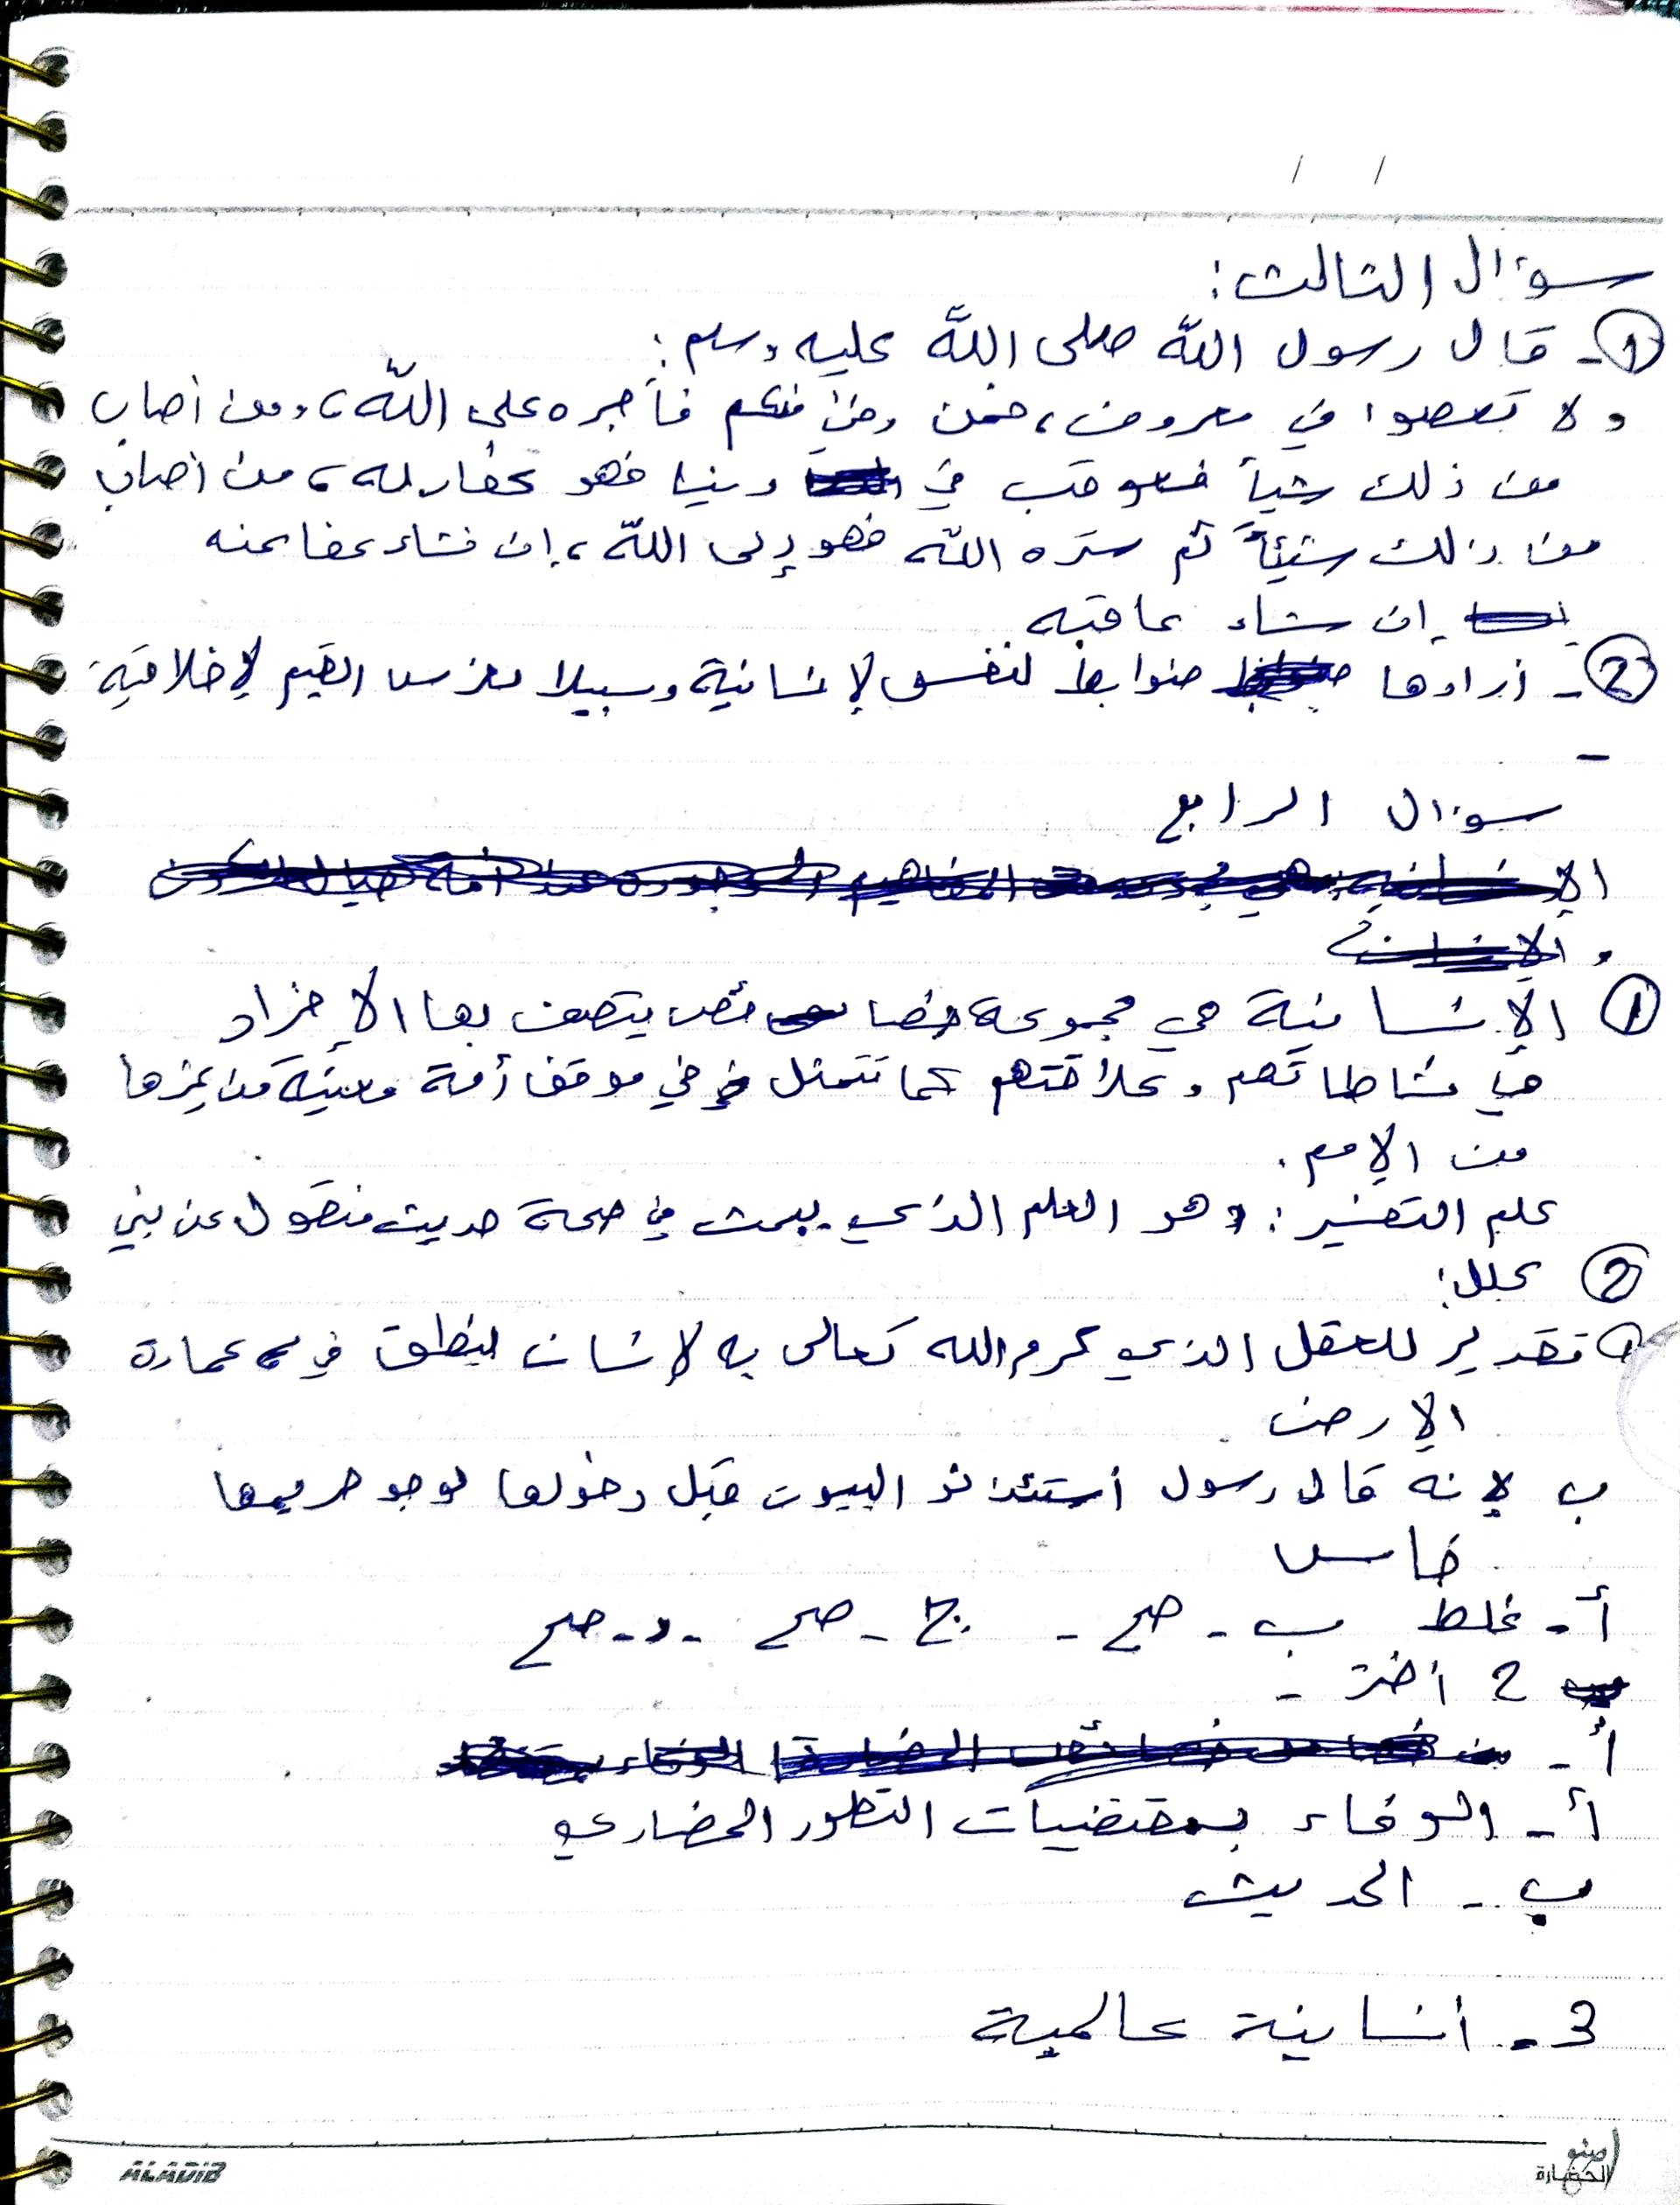 سؤال الثالث:
1- قال رسول الله صلى الله عليه وسلم:
ولا تعصوا في معروف، فمن وفى منكم فأجره على الله، ومن أصاب
من ذلك شيأ فعوقب في دنيا فهو كفار له، من أصاب
من ذلك شيئاً ثم ستره الله فهو إلى الله، إن شاء عفا عنه
إن شاء عاقبه
2- أرادها ضوابط لنفس الإنسانية وسبيلا لغرس القيم الإخلاقية
-
سؤال الرابع
1 الإنسانية هي مجموعة خصائص يتصف بها الإفراد
في نشاطاتهم وعلاقتهم كما تتمثل في موقف أمة معينة من غيرها
من الإمم.
علم التفسير: وهو العلم الذي يبحث في صحة حديث منقول عن نبي
2 علل:
أ تقدير للعقل الذي كرم الله تعالى به لإنسان لينطلق في عمارة
الإرض
ب لإنه قال رسول أستئذنو البيوت قبل دخولها لوجو حريمها
خامس
أ- غلط ب- صح - ج- صح - د- صح
2 اختر -
أ-
أ- الوفاء بمقتضيات التطور الحضاري
ب- الحديث
3- انسانية عالمية
ALADIB
اصنع
الحضارة